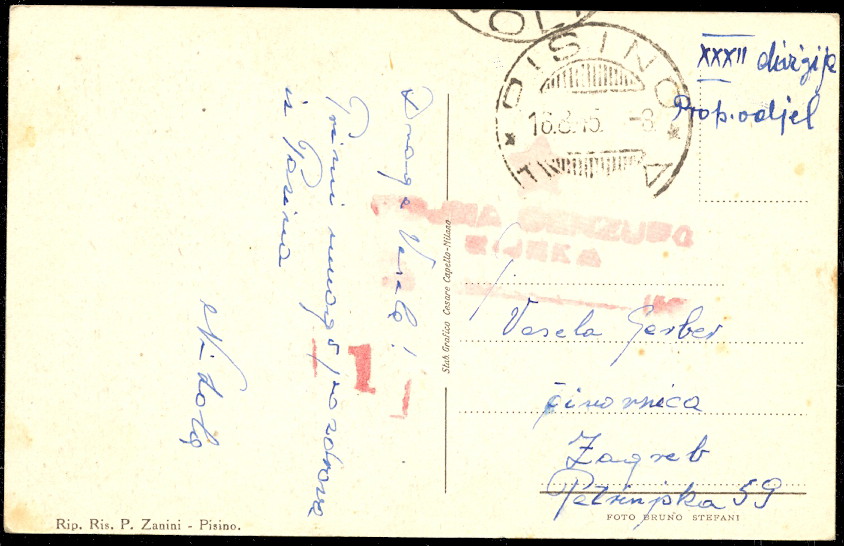 PISINO
16.8.45. -8
XXXII divizija
Prop. odjel
Draga Vesela!
Primi mnogo pozdrava
iz Pazina
Stab. Grafico Cesare Capello-Milano
Vesela Gerber
činovnica
Zagreb
Petrinjska 59
Rip. Ris. P. Zanini - Pisino.
FOTO BRUNO STEFANI
1